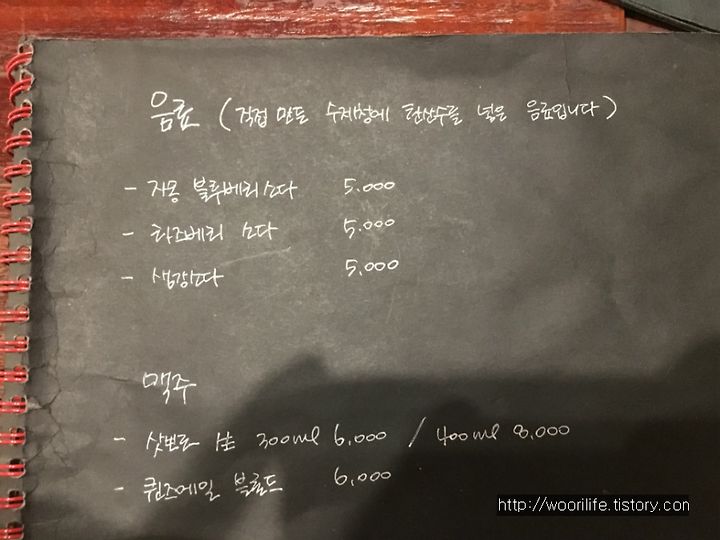 음료 (직접 만든 수제청에 탄산수를 넣은 음료입니다)
- 자몽 블루베리소다 5.000
- 라즈베리 소다 5.000
- 생강소다 5,000
맥주
- 삿뽀로 생 300ml 6,000 / 400ml 8,000
- 퀸즈에일 블론드 6,000
http://woorilife.tistory.com